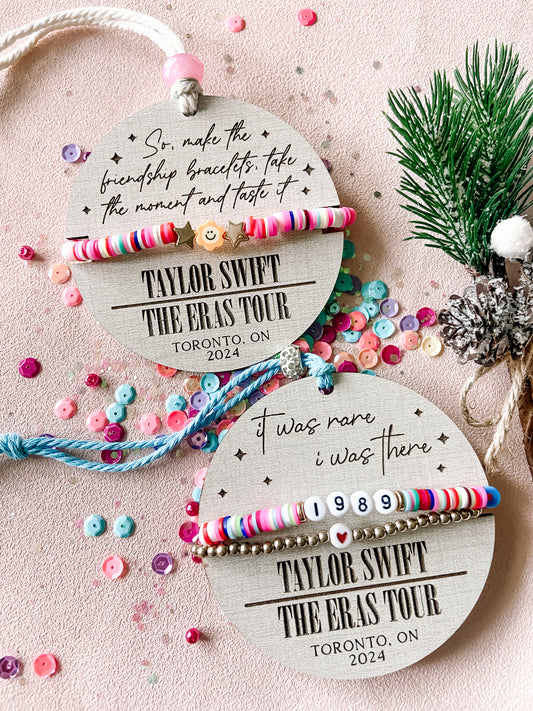 So, make the
friendship bracelets, take
the moment and taste it
TAYLOR SWIFT
THE ERAS TOUR
TORONTO, ON
2024
it was rare
i was there
1989
TAYLOR SWIFT
THE ERAS TOUR
TORONTO, ON
2024